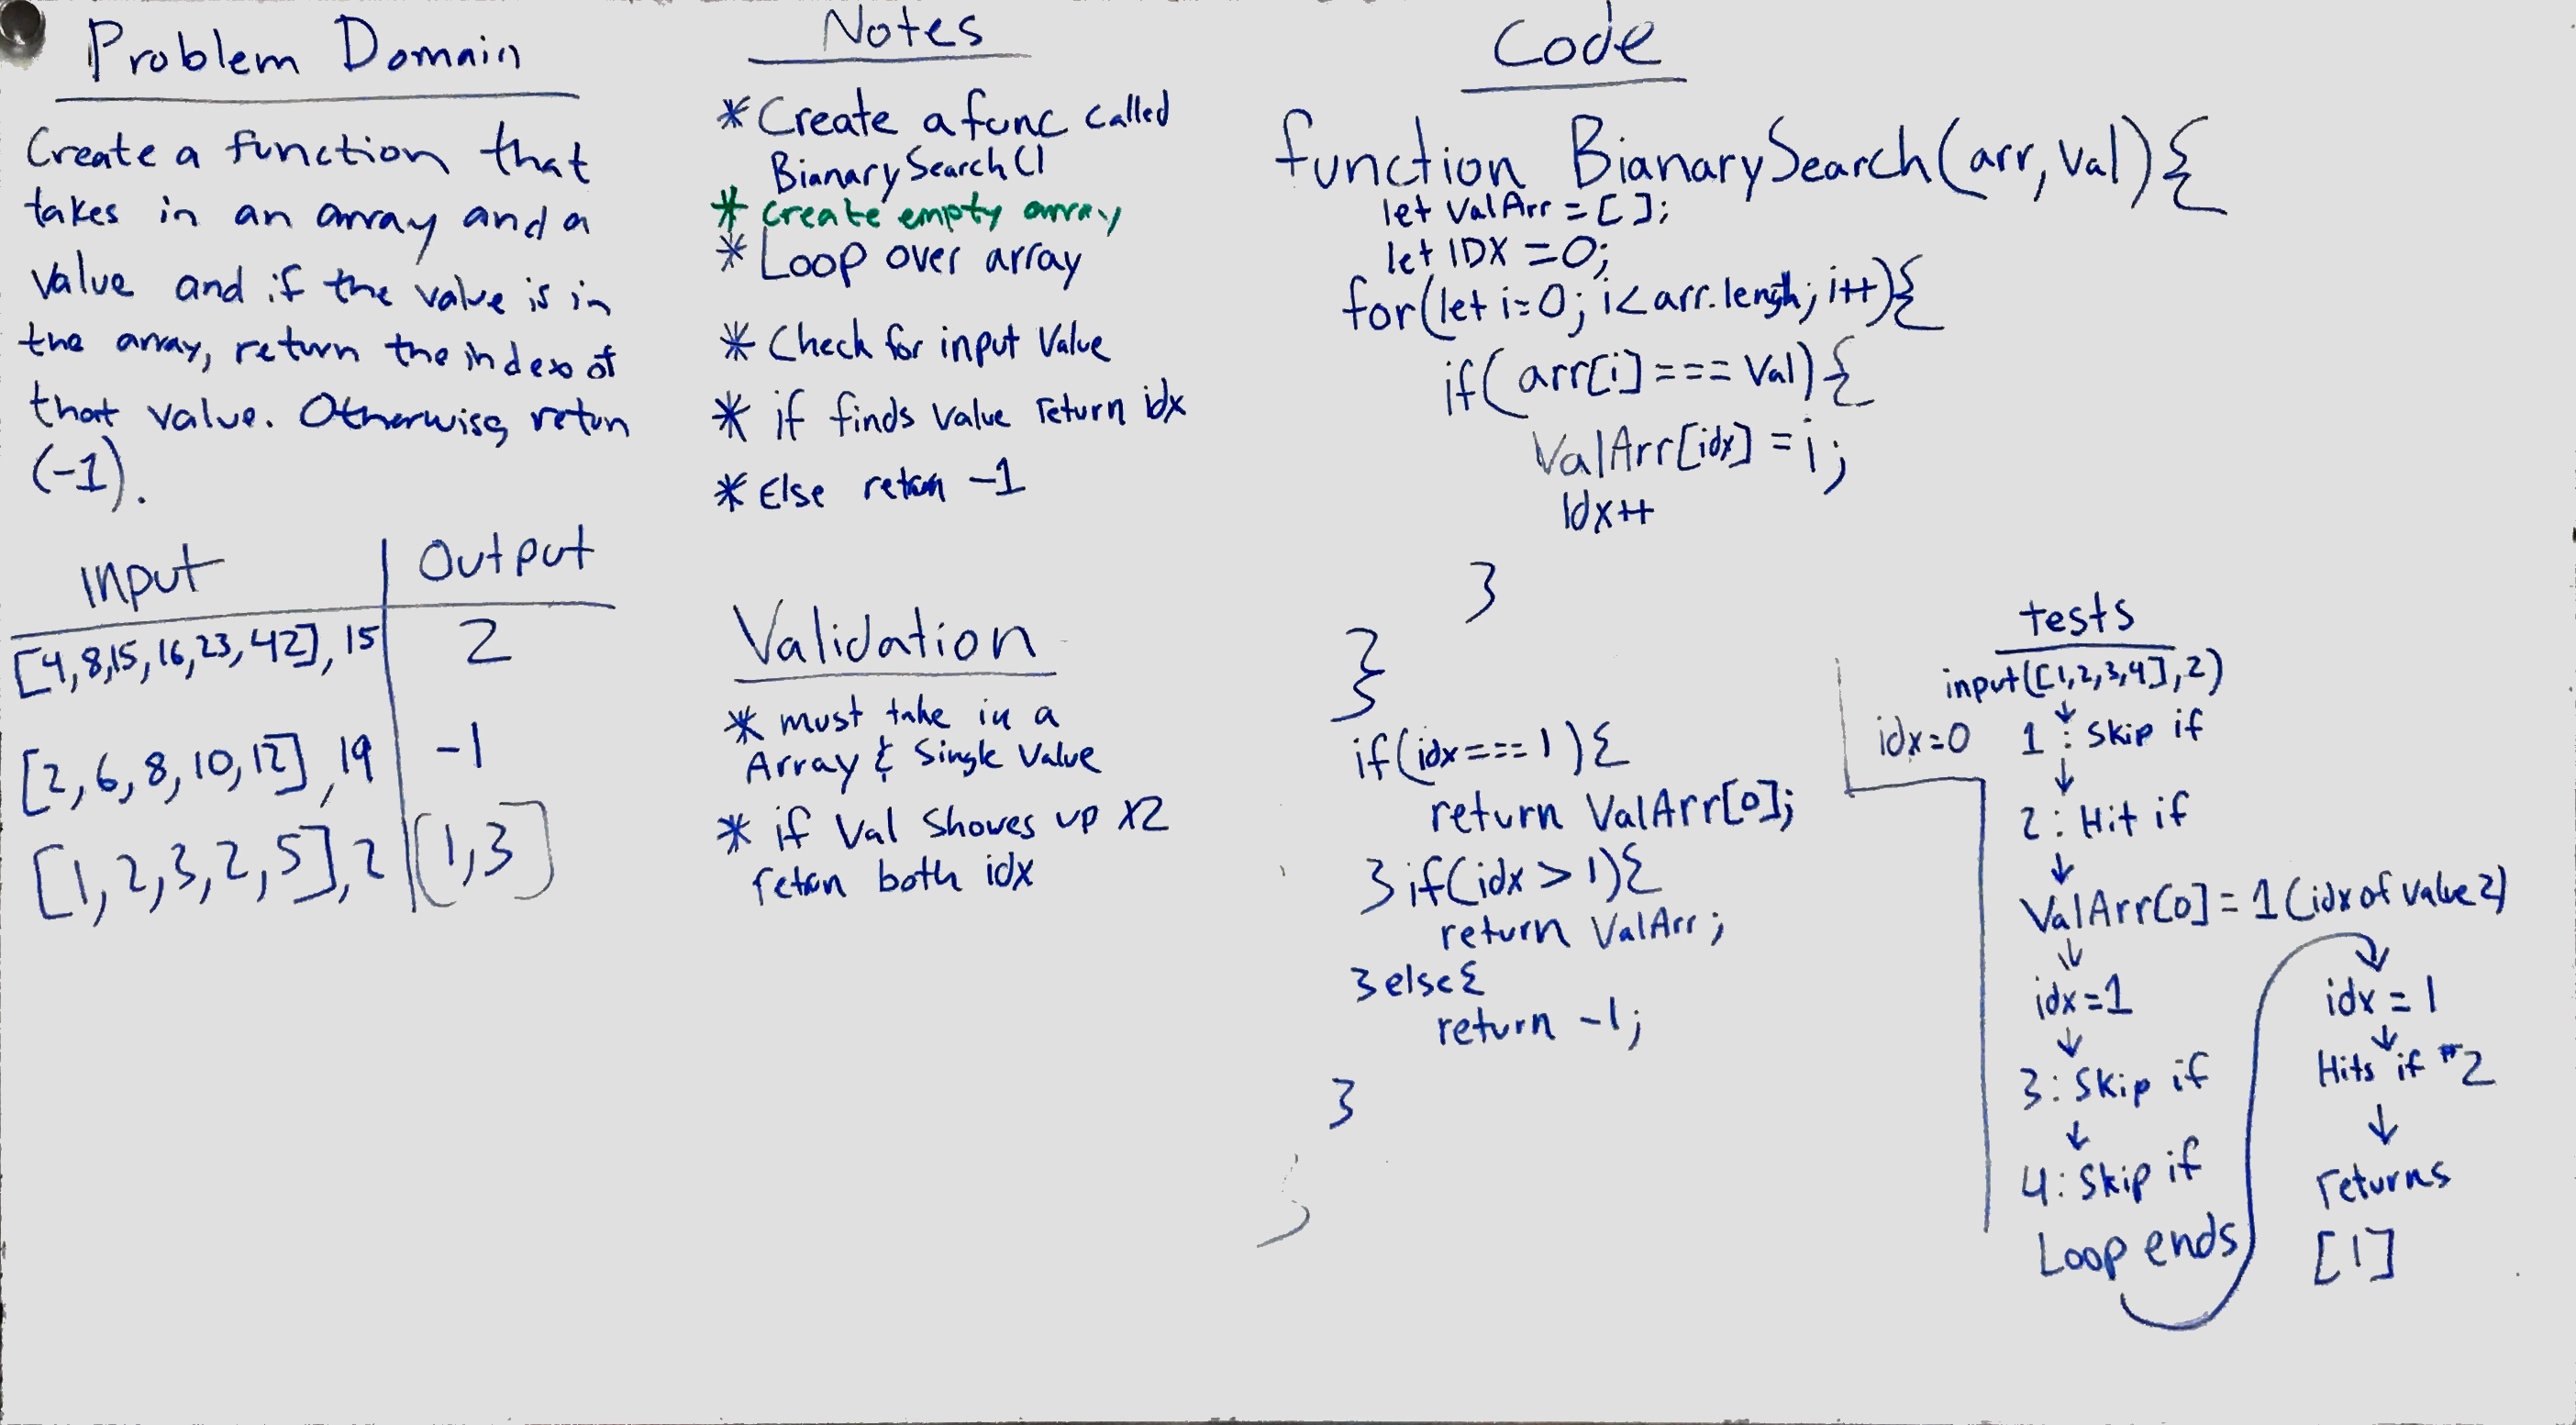 Problem Domain
Create a function that
takes in an array and a
value and if the value is in
the array, return the index of
that value. Otherwise, retun
(-1).
Input | Output
[4,8,15,16,23,42], 15 | 2
[2,6,8,10,12], 19 | -1
[1,2,3,2,5], 2 | [1,3]
Notes
* Create a func called
BianarySearch()
* create empty array
* Loop over array
* Check for input Value
* if finds value return idx
* Else retun -1
Validation
* must take in a
Array & Single Value
* if Val Showes up x2
retun both idx
Code
function BianarySearch(arr, val){
let ValArr = [];
let IDX = 0;
for(let i=0; i< arr.length; i++){
if(arr[i] === Val){
ValArr[idx] = i;
Idx++
}
}
}
if(idx === 1){
return ValArr[0];
}if(idx > 1){
return ValArr;
}else{
return -1;
}
tests
input([1,2,3,4],2)
idx=0 1: Skip if
2: Hit if
ValArr[0] = 1 (idx of value 2)
idx=1
3: Skip if
4: Skip if
Loop ends
idx = 1
Hits if #2
returns
[1]